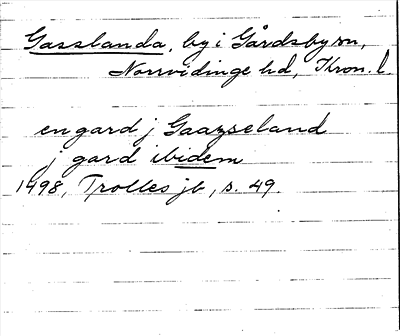 Gasslanda, by i Gårdsby sn,
Norrvidinge hd, Kron. l.
en gard j Gaazseland
j gard ibidem
1498, Trolles jb, s. 49.